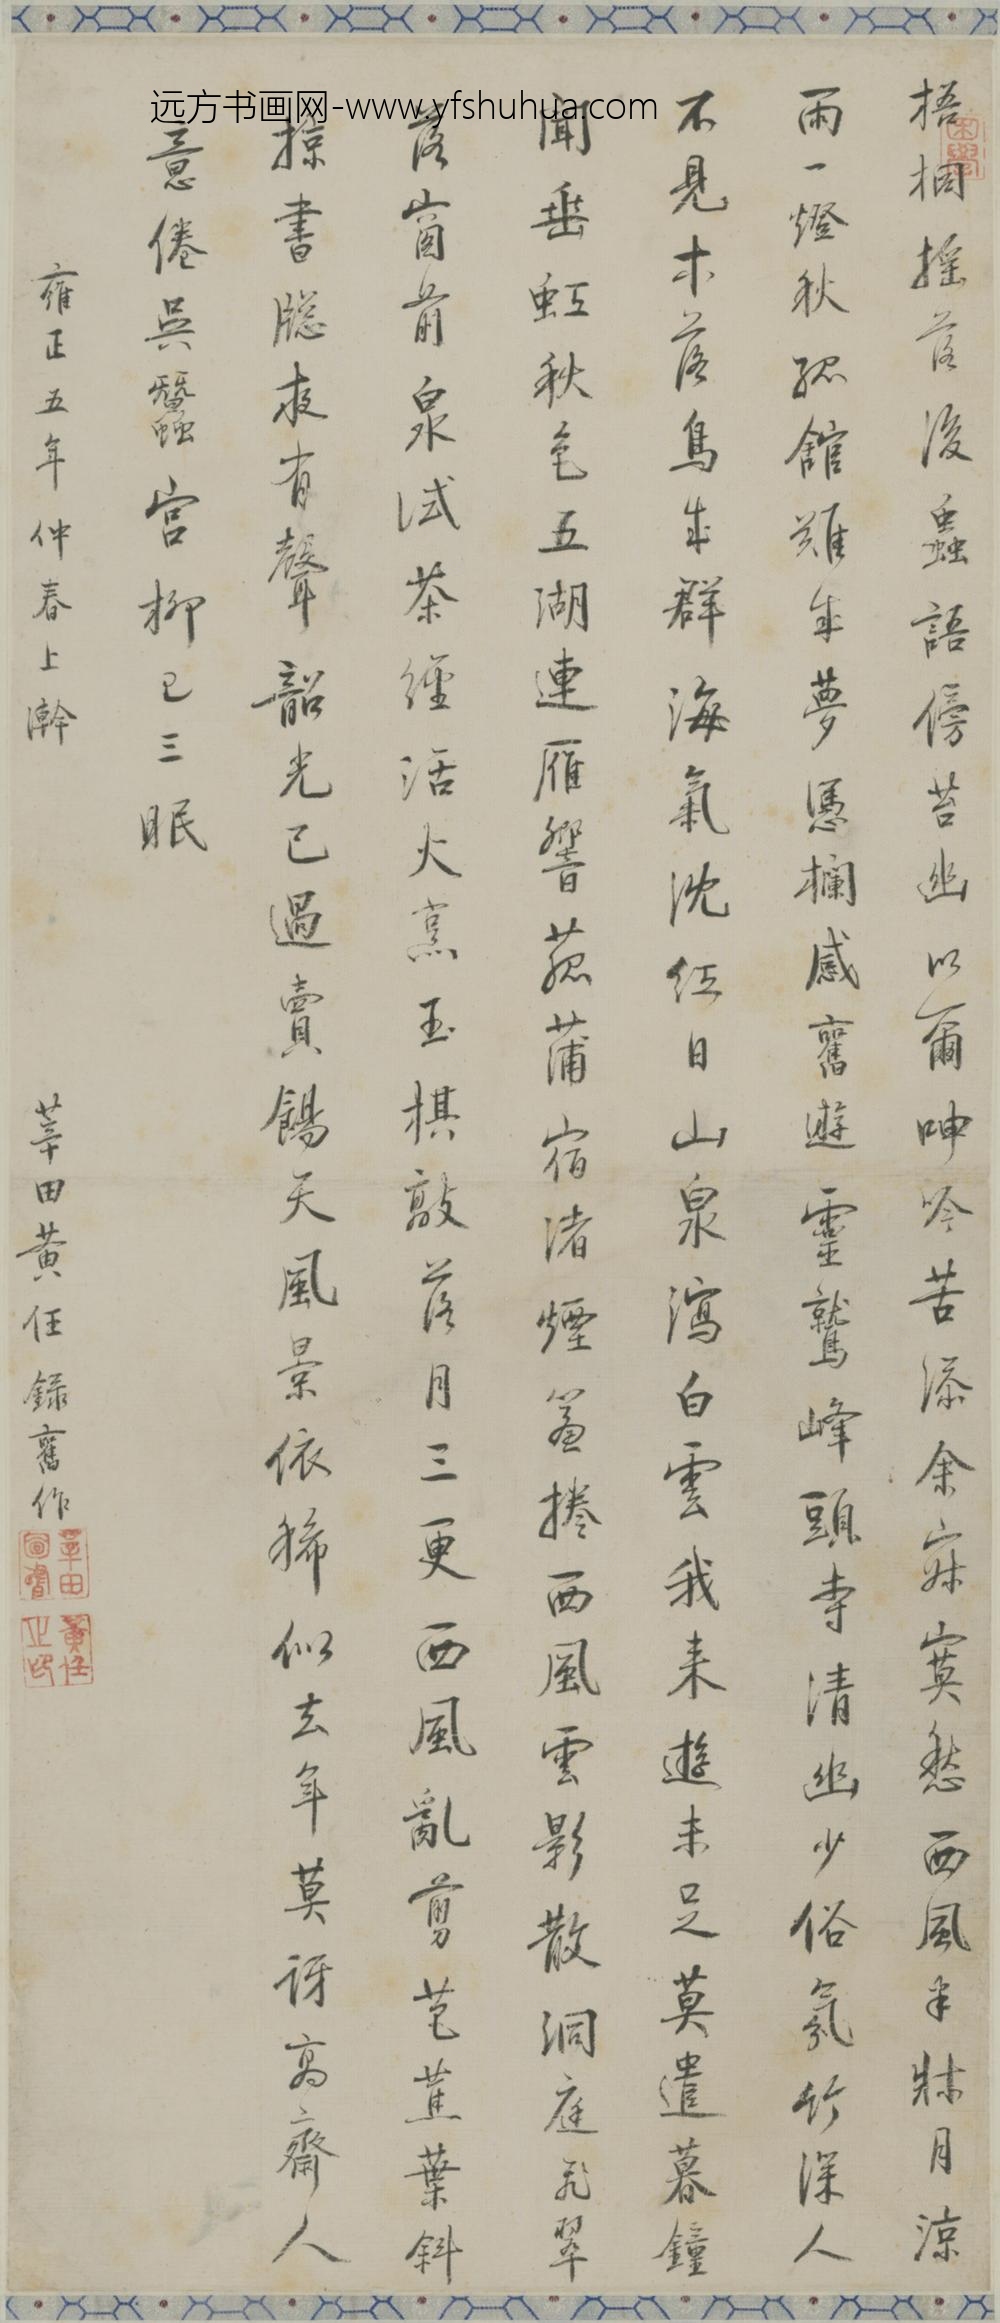 远方书画网-www.yfshuhua.com
梧桐搖落後蟲語傍苔幽以爾呻吟苦添余寂寞愁西風半牀月涼
雨一燈秋孤館難成夢憑欄感舊遊靈鷲峰頭寺清幽少俗氛竹深人
不見木落鳥成群海氣沈紅日山泉瀉白雲我來遊未足莫遣暮鐘
聞垂虹秋色五湖連雁響菰蒲宿渚煙簾捲西風雲影散洞庭飛翠
落窗前泉試茶經活火烹玉棋敲落月三更西風亂剪芭蕉葉斜
掠書牕夜有聲韶光已過賣餳天風景依稀似去年莫訝高齋人
意倦吳蠶宮柳已三眠
雍正五年仲春上澣
莘田黃任錄舊作
莘田
黃任
之印